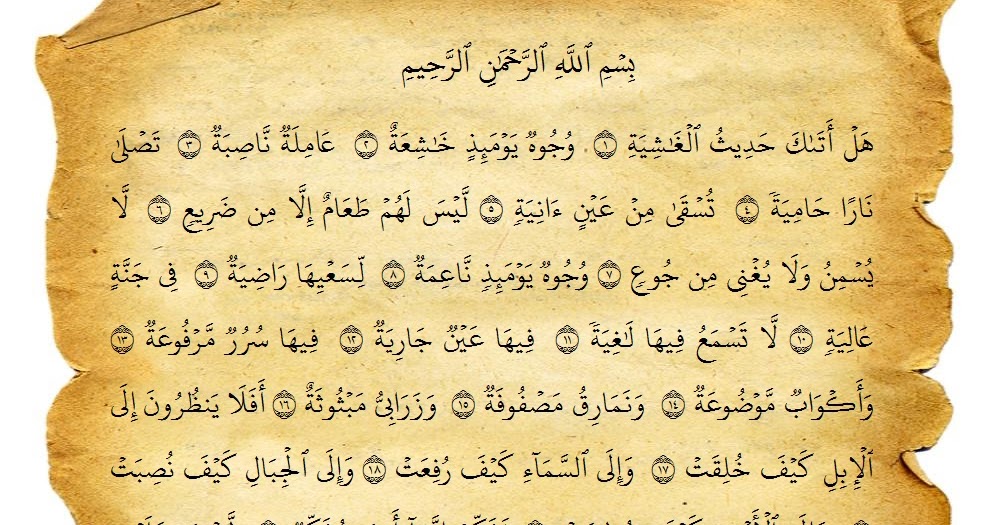 بِسْمِ ٱللَّهِ ٱلرَّحْمَٰنِ ٱلرَّحِيمِ
هَلْ أَتَىٰكَ حَدِيثُ ٱلْغَٰشِيَةِ ١ وُجُوهٌ يَوْمَئِذٍ خَٰشِعَةٌ ٢ عَامِلَةٌ نَّاصِبَةٌ ٣ تَصْلَىٰ
نَارًا حَامِيَةً ٤ تُسْقَىٰ مِنْ عَيْنٍ ءَانِيَةٍ ٥ لَّيْسَ لَهُمْ طَعَامٌ إِلَّا مِن ضَرِيعٍ ٦ لَّا
يُسْمِنُ وَلَا يُغْنِى مِن جُوعٍ ٧ وُجُوهٌ يَوْمَئِذٍ نَّاعِمَةٌ ٨ لِّسَعْيِهَا رَاضِيَةٌ ٩ فِى جَنَّةٍ
عَالِيَةٍ ١٠ لَّا تَسْمَعُ فِيهَا لَٰغِيَةً ١١ فِيهَا عَيْنٌ جَارِيَةٌ ١٢ فِيهَا سُرُرٌ مَّرْفُوعَةٌ ١٣
وَأَكْوَابٌ مَّوْضُوعَةٌ ١٤ وَنَمَارِقُ مَصْفُوفَةٌ ١٥ وَزَرَابِىُّ مَبْثُوثَةٌ ١٦ أَفَلَا يَنظُرُونَ إِلَى
ٱلْإِبِلِ كَيْفَ خُلِقَتْ ١٧ وَإِلَى ٱلسَّمَآءِ كَيْفَ رُفِعَتْ ١٨ وَإِلَى ٱلْجِبَالِ كَيْفَ نُصِبَتْ